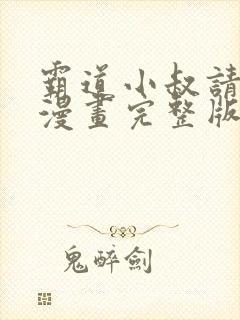 霸道小叔請
漫畫完整版
鬼醉劍